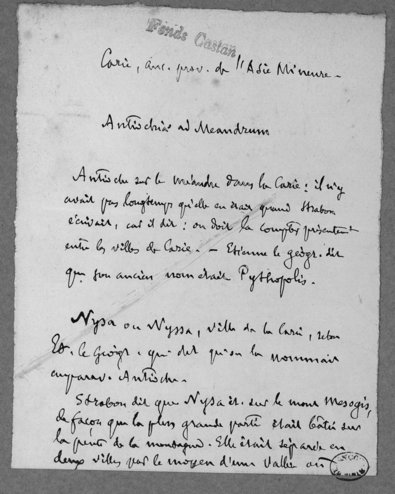 Fonds Castan
Carie, anc. prov. de l'Asie Mineure. -
Antiochia ad Meandrum
Antioche sur le Méandre dans la Carie : il n'y
avait pas longtemps qu'elle en était quand Strabon
écrivait, car il dit : on doit la compter présentement
entre les villes de Carie. - Etienne le géogr. dit
que son ancien nom était Pythopolis.
Nysa ou Nyssa, ville de la Carie, selon
Et. le Géogr. qui dit qu'on la nommait
auparav. Antioche.
Strabon dit que Nysa ét. sur le mont Mesogis,
de façon que la plus grande partie était bâtie sur
la pente de la montagne. Elle était séparée en
deux villes par le moyen d'une vallée où